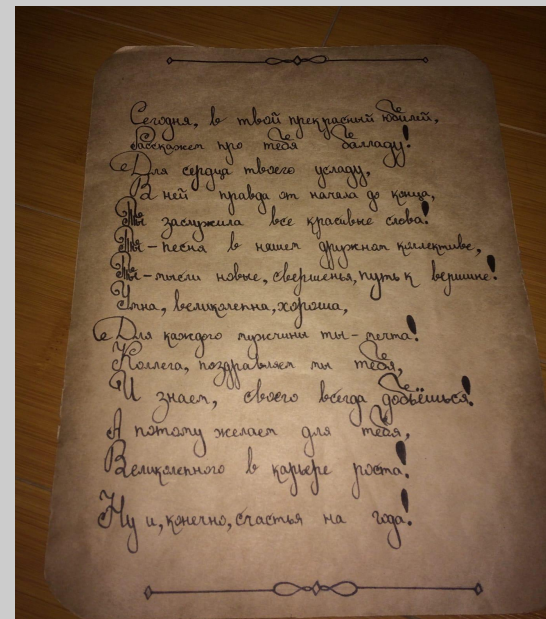 Сегодня, в твой прекрасный юбилей,
Расскажем про тебя балладу!
Для сердца твоего усладу,
В ней правда от начала до конца,
Ты заслужила все красивые слова!
Ты - песня в нашем дружном коллективе,
Ты - мысли новые, свершенья, путь к вершине!
Умна, великолепна, хороша,
Для каждого мужчины ты - мечта!
Коллега, поздравляем мы тебя,
И знаем, своего всегда добьёшься!
А потому желаем для тебя,
Великолепного в карьере роста!
Ну и, конечно, счастья на года!